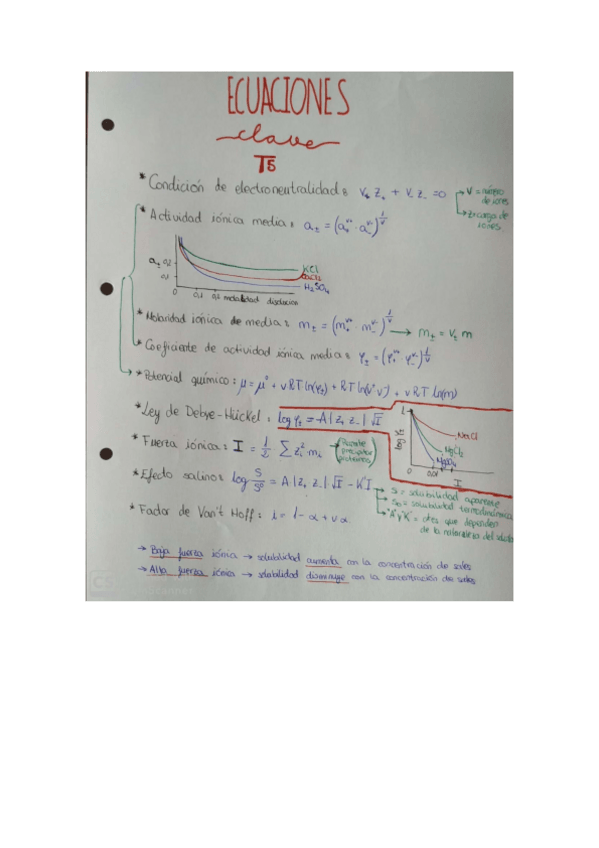 ECUACIONES
clave
T5
* Condición de electroneutralidad: ν₊ z₊ + ν₋ z₋ = 0
ν = número de iones
z = carga de iones
* Actividad iónica media: a± = (a₊^ν⁺ · a₋^ν⁻)^(1/ν)
a± 0,2
0,1
0 0,1 0,2 molalidad disolución
KCl
H₂SO₄
* Molaridad iónica de media: m± = (m₊^ν⁺ · m₋^ν⁻)^(1/ν) → m± = ν± m
* Coeficiente de actividad iónica media: φ± = (φ₊^ν⁺ · φ₋^ν⁻)^(1/ν)
* Potencial químico: μ = μ° + νRT ln(φ±) + RT ln(ν⁺ν⁻) + νRT ln(m)
* Ley de Debye-Hückel: log φ± = -A | z₊ z₋ | √I
log γ± 1
NaCl
MgCl₂
MgSO₄
0 0,01
I
* Fuerza iónica: I = 1/2 Σ zᵢ² mᵢ (Permite precipitar proteínas)
* Efecto salino: log S/S₀ = A | z₊ z₋ | · √I - K' I
S = solubilidad aparente
S₀ = solubilidad termodinámica
A y K' = ctes que dependen
de la naturaleza del soluto
* Factor de Van't Hoff: i = 1 - α + να
→ Baja fuerza iónica → solubilidad aumenta con la concentración de sales
→ Alta fuerza iónica → solubilidad disminuye con la concentración de sales